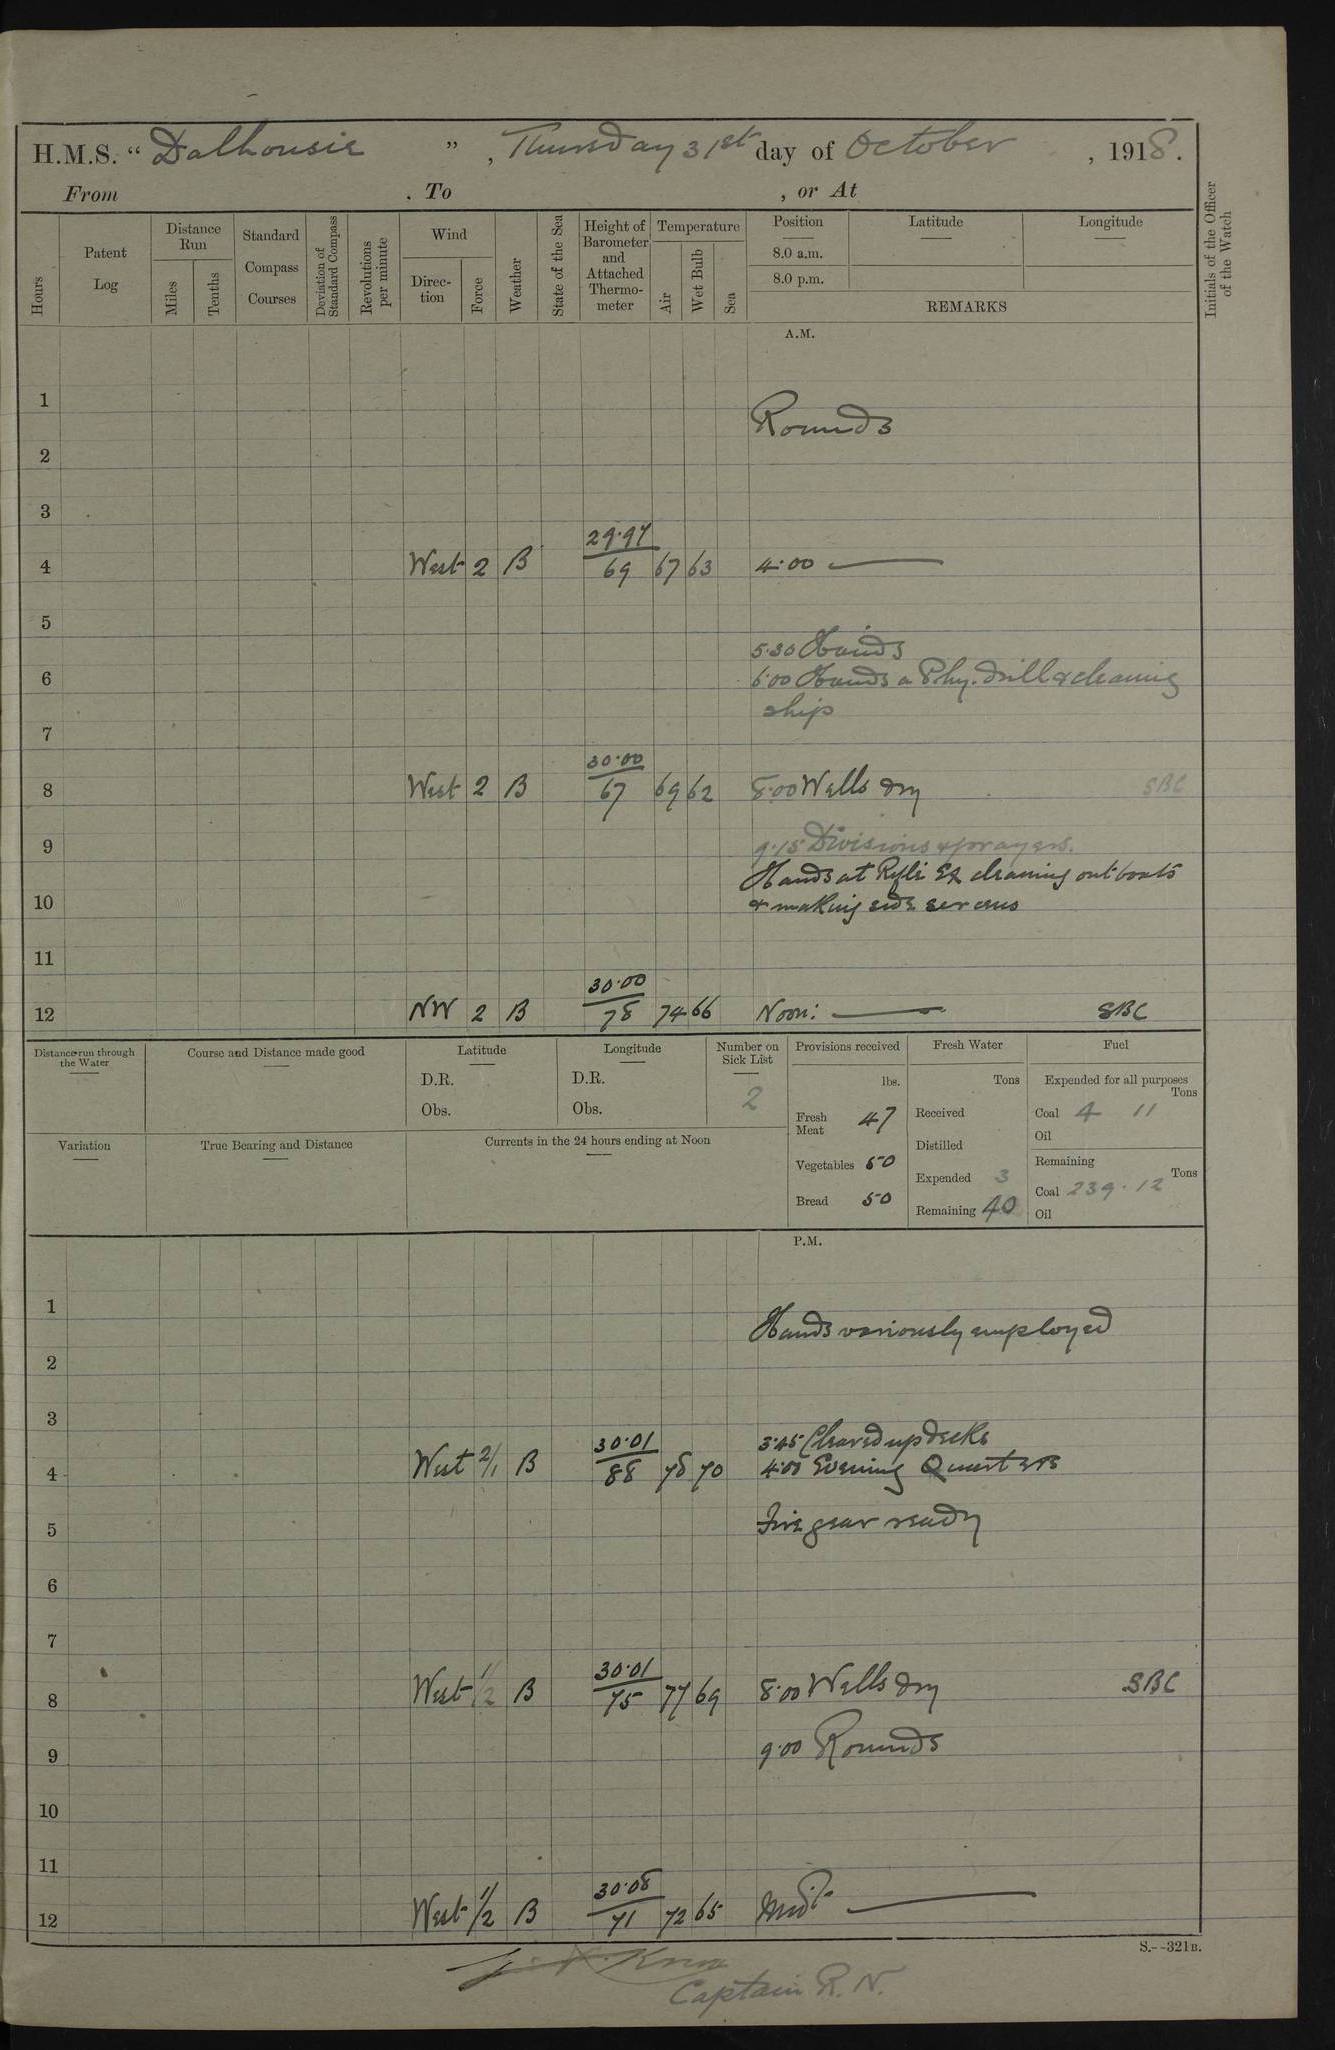 H.M.S. “ Dalhousie ” , Thursday 31st day of October , 1918.
From . To , or At
Hours
Patent Log
Distance Run
Miles
Tenths
Standard Compass Courses
Deviation of Standard Compass
Revolutions per minute
Wind
Direc- tion
Force
Weather
State of the Sea
Height of Barometer and Attached Thermo- meter
Temperature
Air
Wet Bulb
Sea
Position Latitude Longitude
8.0 a.m.
8.0 p.m.
REMARKS
Initials of the Officer of the Watch
A.M.
1
Rounds
2
3
29.97
4 West 2 B 69 67 63 4.00
5
5.30 Hands
6 6.00 Hands a Phy. drill & cleaning
ship
7
30.00
8 West 2 B 67 69 62 8.00 Wells dry SBC
9 9.15 Divisions & prayers.
Hands at Rifle Ex cleaning out boats
10 & making side screens
11
30.00
12 NW 2 B 78 74 66 Noon: SBC
Distance run through the Water
Course and Distance made good
Latitude
D.R.
Obs.
Longitude
D.R.
Obs.
Number on Sick List
2
Provisions received
lbs.
Fresh Meat 47
Vegetables 50
Bread 50
Fresh Water
Tons
Received
Distilled
Expended 3
Remaining 40
Fuel
Expended for all purposes
Tons
Coal 4 11
Oil
Remaining
Tons
Coal 239.12
Oil
Variation
True Bearing and Distance
Currents in the 24 hours ending at Noon
P.M.
1
Hands variously employed
2
3
30.01 3.45 Cleared up decks
4 West 2/1 B 88 78 70 4.00 Evening Quarters
5 Fire gear ready
6
7
30.01
8 West 1/2 B 75 77 69 8.00 Wells dry SBC
9 9.00 Rounds
10
11
30.08
12 West 1/2 B 71 72 65 Midt
S.--321B.
Captain R.N.